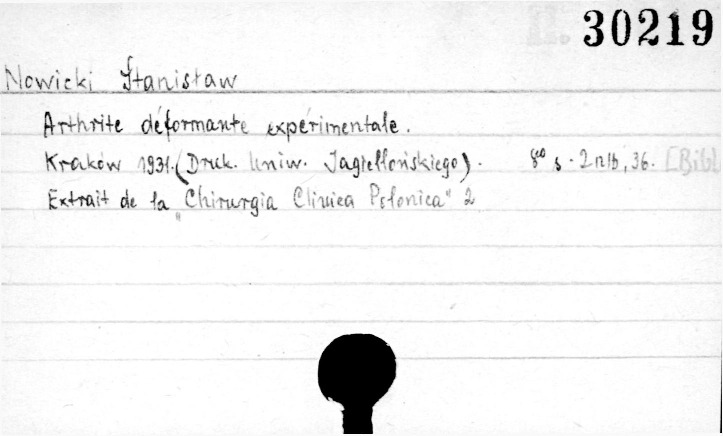 30219
Nowicki Stanisław
Arthrite déformante expérimentale.
Kraków 1931. (Druk. Uniw. Jagiellońskiego). 8° s. 2 nlb, 36. [Bibl
Extrait de la „Chirurgia Clinica Polonica" 2